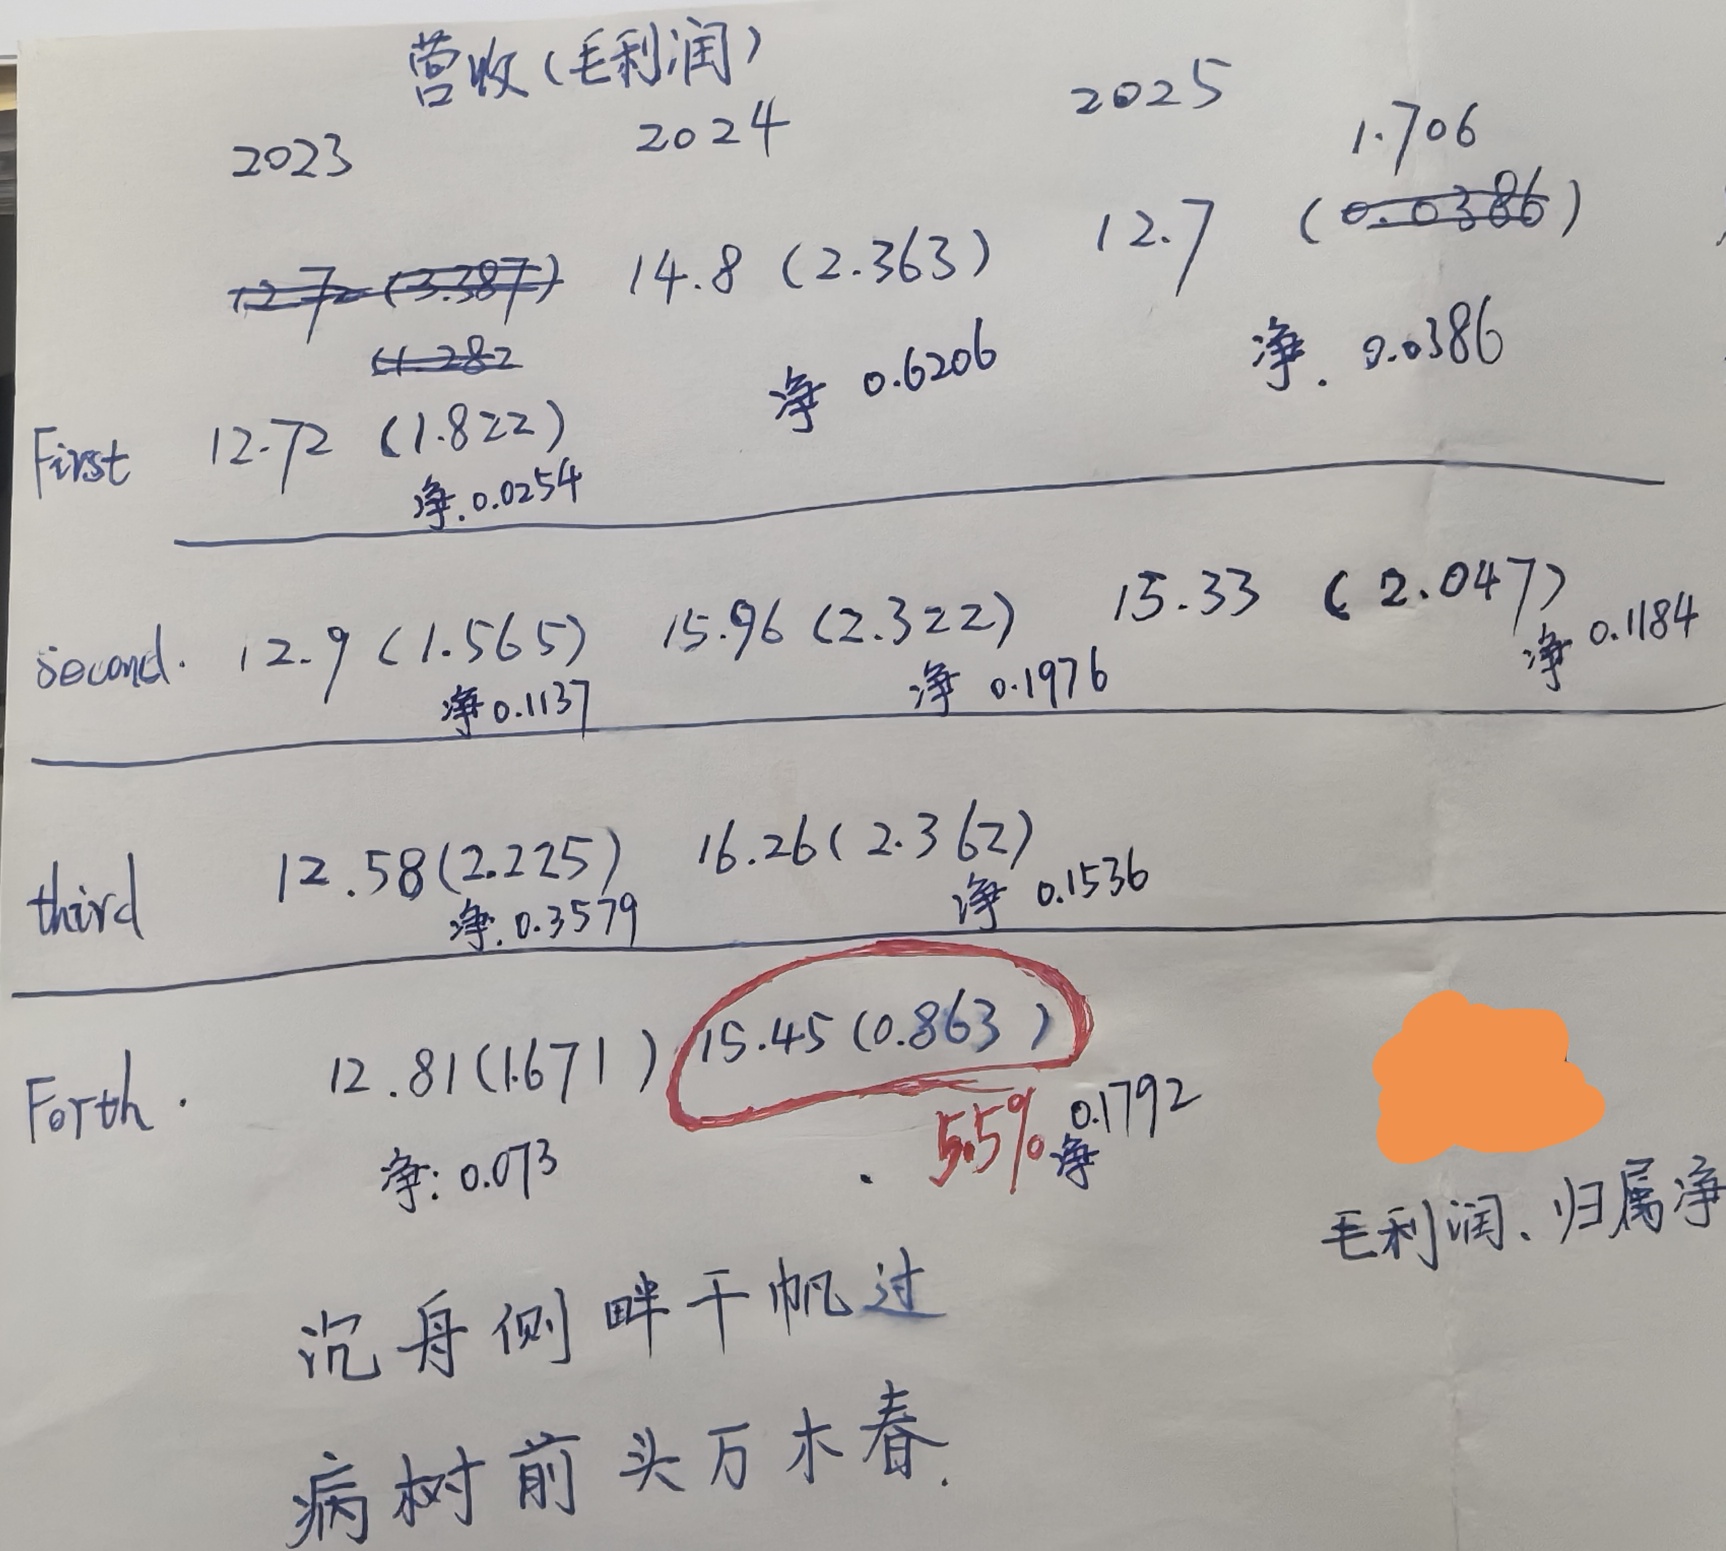 营收(毛利润)
2023 2024 2025
1.706
12.72 (3.387) 14.8 (2.363) 12.7 (0.0386)
(1.282
净 0.6206 净. 0.0386
First 12.72 (1.822)
净.0.0254
second. 12.9 (1.565) 15.96 (2.322) 15.33 (2.047)
净0.1137 净 0.1976 净 0.1184
third 12.58(2.225) 16.26(2.362)
净.0.3579 净 0.1536
Forth. 12.81(1.671) 15.45(0.863)
净:0.073 5.5% 净 0.1792
毛利润、归属净
沉舟侧畔千帆过
病树前头万木春.